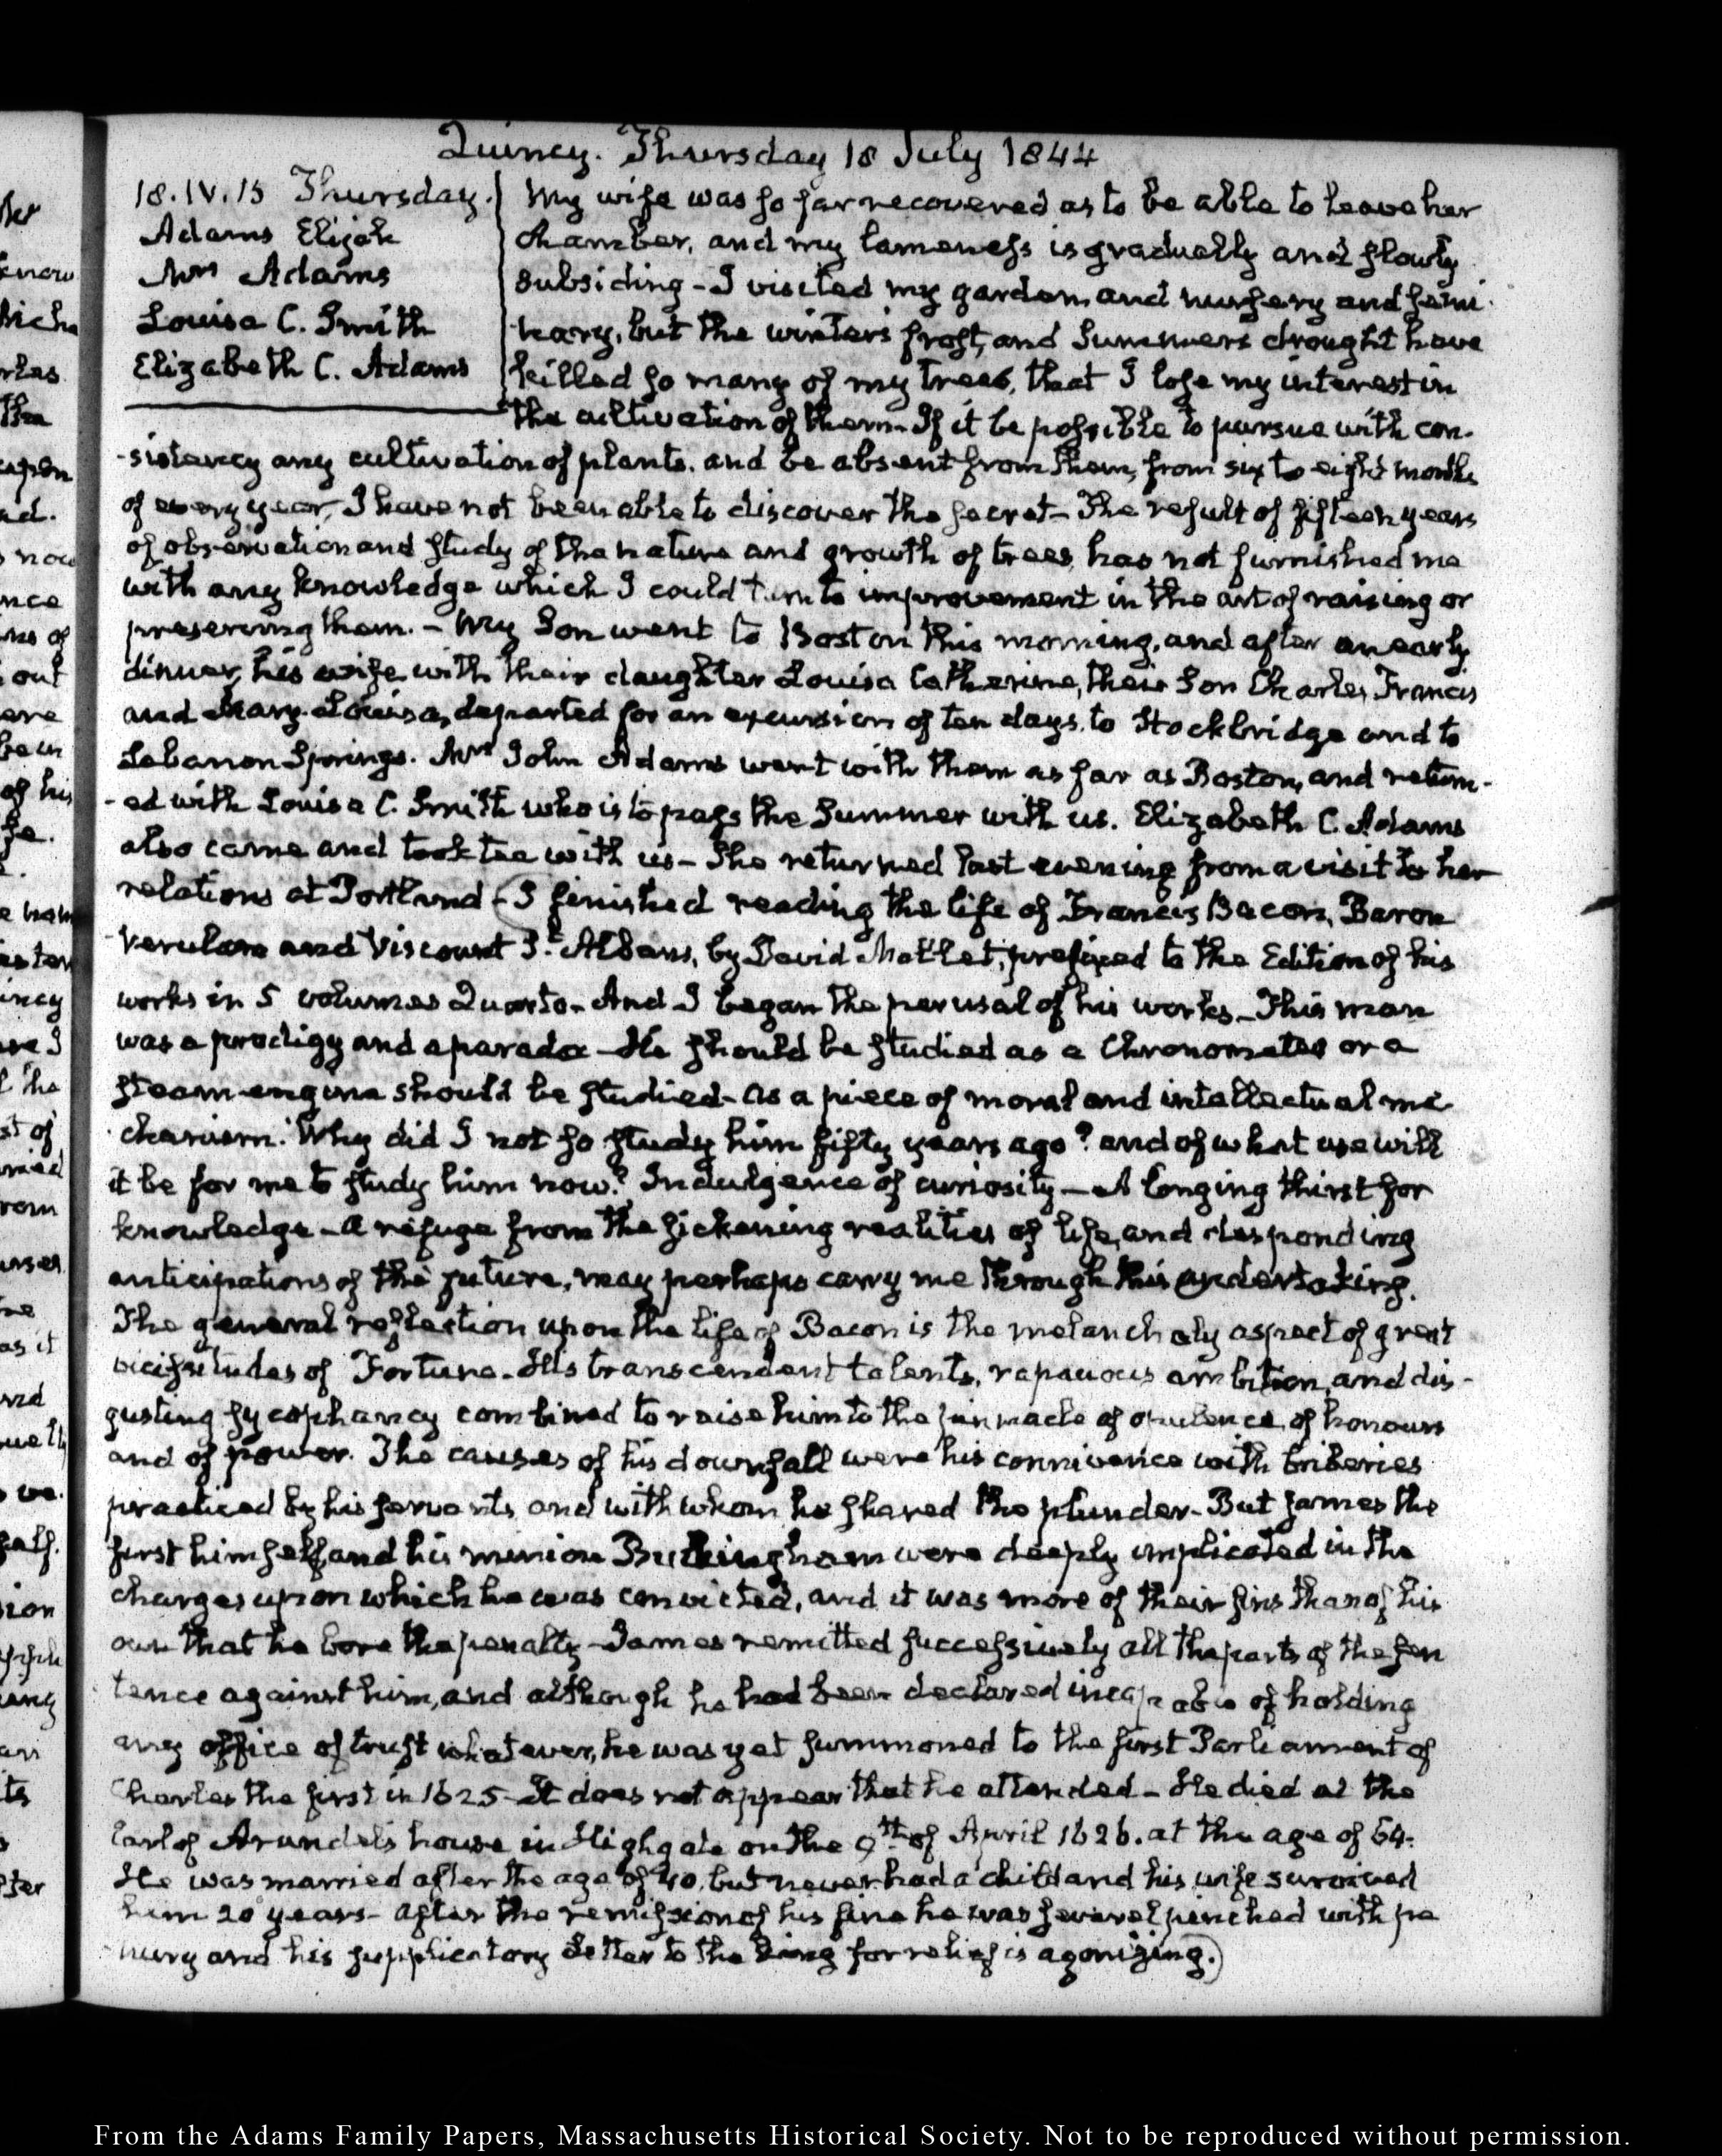 Quincy. Thursday 18 July 1844
18. IV. 15 Thursday.
Adams Elijah
Mrs Adams
Louisa C. Smith
Elizabeth C. Adams
My wife was so far recovered as to be able to leave her
chamber, and my lameness is gradually and slowly
subsiding - I visited my garden, and nursery and semi-
nary, but the winter's frost, and Summer's drought have
killed so many of my trees, that I lose my interest in
the cultivation of them - If it be possible to pursue with con-
-sistency any cultivation of plants, and be absent from them, from six to eight months
of every year, I have not been able to discover the secret - The result of fifteen years
of observation and study of the nature and growth of trees, has not furnished me
with any knowledge which I could turn to improvement in the art of raising or
preserving them. - My Son went to Boston this morning, and after an early
dinner, his wife with their daughter Louisa Catherine, their Son Charles Francis
and Mary-Louisa, departed for an excursion of ten days, to Stockbridge and to
Lebanon Springs. Mrs John Adams went with them as far as Boston, and return-
-ed with Louisa C. Smith who is to pass the Summer with us. Elizabeth C. Adams
also came and took tea with us - She returned last evening from a visit to her
relations at Portland - I finished reading the life of Francis Bacon, Baron
Verulam and Viscount St. Albans, by David Mallet, prefixed to the Edition of his
works in 5 volumes Quarto - And I began the perusal of his works - This man
was a prodigy and a paradox - He should be studied as a Chronometer or a
steam-engine should be studied - as a piece of moral and intellectual me-
-chanism. Why did I not so study him fifty years ago? and of what use will
it be for me to study him now? Indulgence of curiosity - A longing thirst for
knowledge - a refuge from the sickening realities of life, and desponding
anticipations of the future, may perhaps carry me through this undertaking.
The general reflection upon the life of Bacon is the melancholy aspect of great
vicissitudes of Fortune. His transcendent talents, rapacious ambition, and dis-
gusting sycophancy combined to raise him to the pinnacle of opulence, of honours
and of power. The causes of his downfall were his connivance with briberies
practiced by his servants, and with whom he shared the plunder - But James the
first himself, and his minion Buckingham were deeply implicated in the
charges upon which he was convicted, and it was more of their sins than of his
own that he bore the penalty - James remitted successively all the parts of the sen
tence against him, and although he had been declared incapable of holding
any office of trust whatever, he was yet summoned to the first Parliament of
Charles the first in 1625 - It does not appear that he attended - He died at the
Earl of Arundel's house in Highgate on the 9th of April 1626. at the age of 64.
He was married after the age of 40, but never had a child and his wife survived
him 20 years - after the remission of his fine he was several pinched with pe
nury and his supplicatory letter to the king for relief is agonizing.)
From the Adams Family Papers, Massachusetts Historical Society. Not to be reproduced without permission.